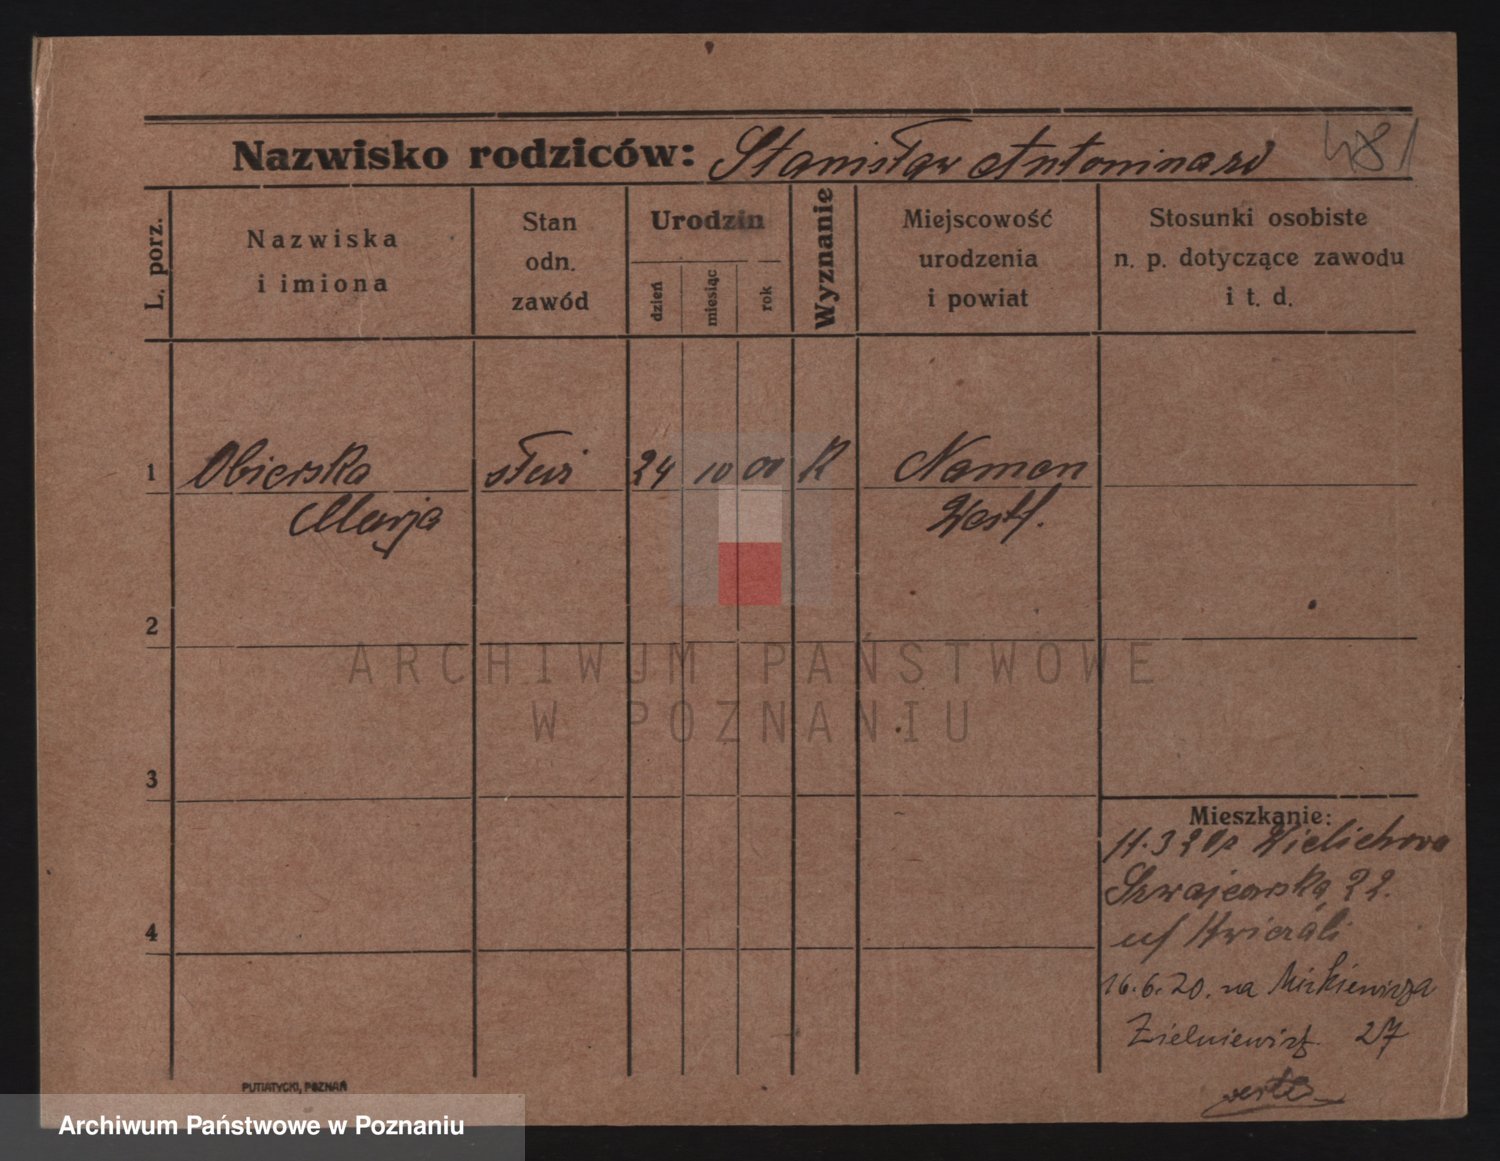 481
Nazwisko rodziców: Stanisław Antonina
L. porz.
Nazwiska
i imiona
Stan
odn.
zawód
Urodzin
dzień
miesiąc
rok
Wyznanie
Miejscowość
urodzenia
i powiat
Stosunki osobiste
n. p. dotyczące zawodu
i t. d.
1 Obierska służ 24 10 00 K Naman
Marja Westf.
2
ARCHIWUM PAŃSTWOWE
W POZNANIU
3
Mieszkanie:
11.3 20 z Wielichowa
Szwajcarska 22.
u/
4
16.6.20. na Mickiewicza
27
PUTIATYCKI, POZNAŃ
Archiwum Państwowe w Poznaniu